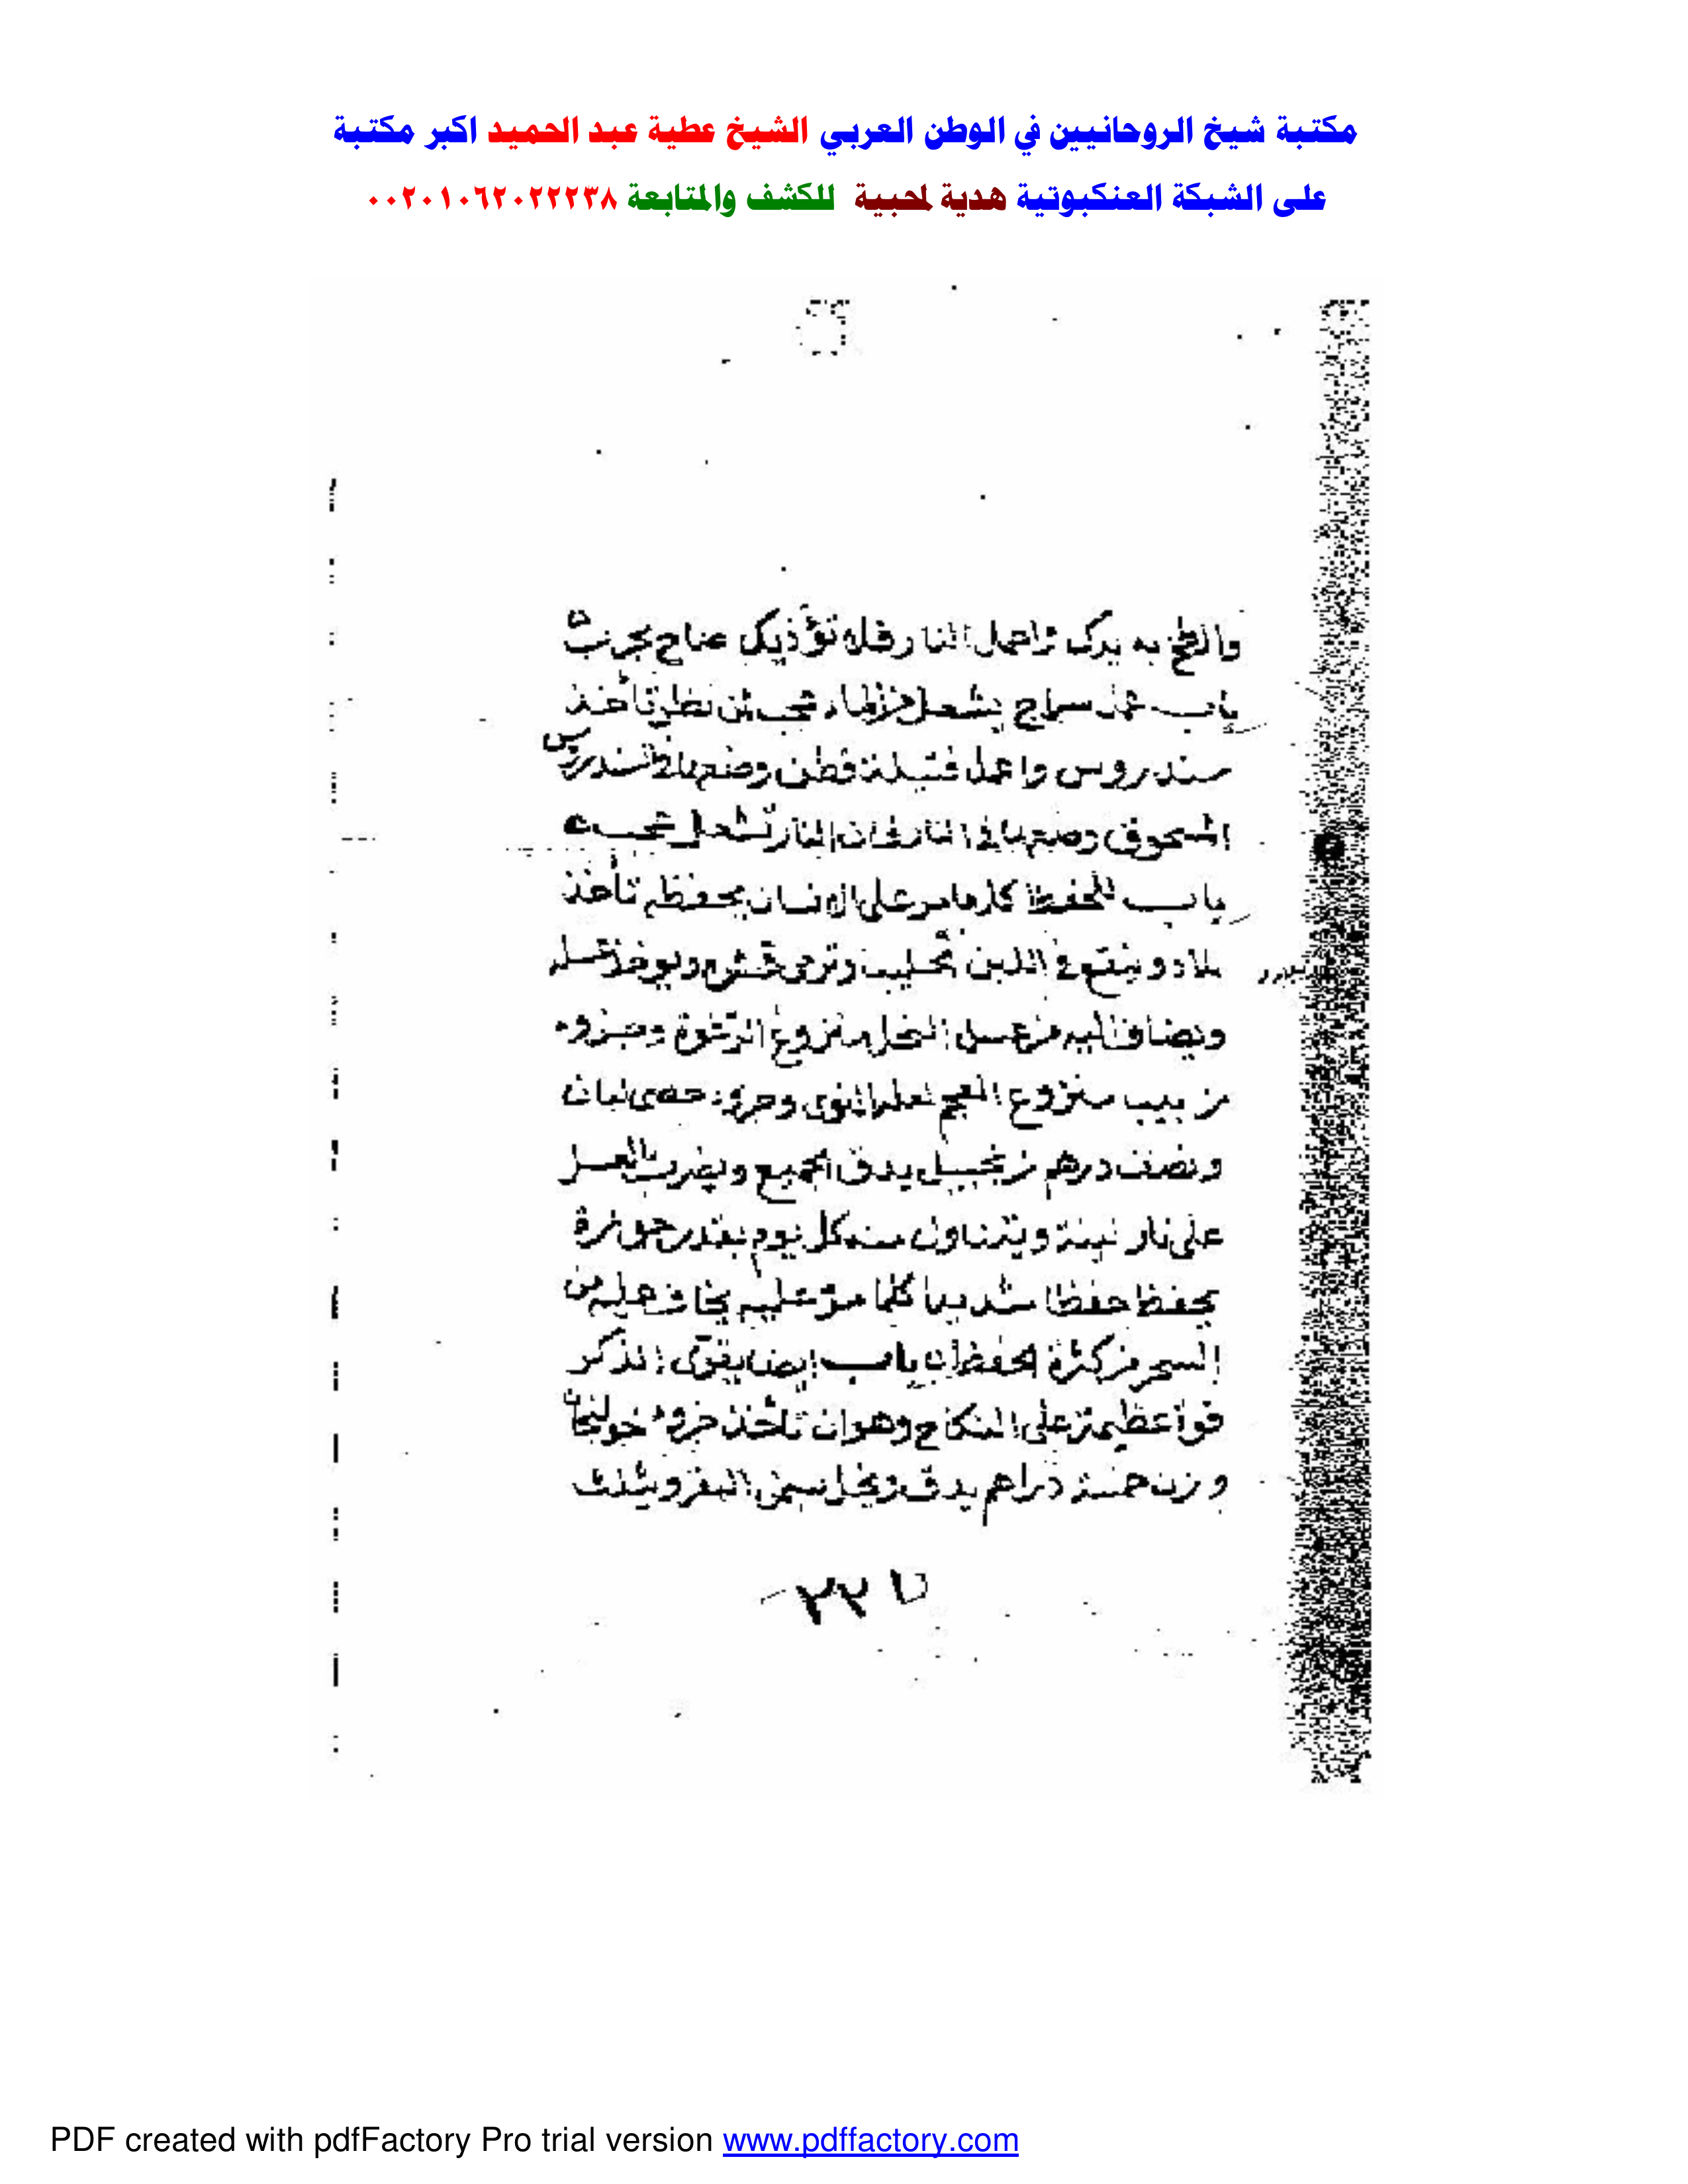 مكتبة شيخ الروحانيين في الوطن العربي الشيخ عطية عبد الحميد اكبر مكتبة
على الشبكة العنكبوتية هدية لمحبية للكشف والمتابعة ٠٠٢٠١٠٦٢٠٢٢٢٣٨
والطخ به يدك واحمل النار فلا تؤذيك صاح مجرب
باب عمل سراج يشعل من الماء عجب لمن نظر تأخذ
سندروس واعمل فتيلة قطن وضعها في السندروس
المسحوق وضعها في النار فان النار تشعل عجب
باب للحفظ كل ما مر على الانسان يحفظه تأخذ
بلادر وينقع في اللبن الحليب وترمى قشره ويوخذ عسله
ويضاف اليه من عسل النحل منزوع الرغوة وجزوء
زبيب منزوع العجم لعله النوى وجزوء حصى لبان
ونصف درهم زنجبيل يدق الجميع ويضرب بالعسل
على نار لينة ويتناول منه كل يوم بقدر جوزة
يحفظ حفظا شديدا كلما مر عليه يخاف عليه من
السحر من كثرة الحفظ باب ايضا يقوى الذكر
قوة عظيمة على النكاح وهو ان تأخذ جزوء خولنجان
وزن خمسة دراهم يدق ويخل بسمن البقر ويلت
٢٢
PDF created with pdfFactory Pro trial version www.pdffactory.com